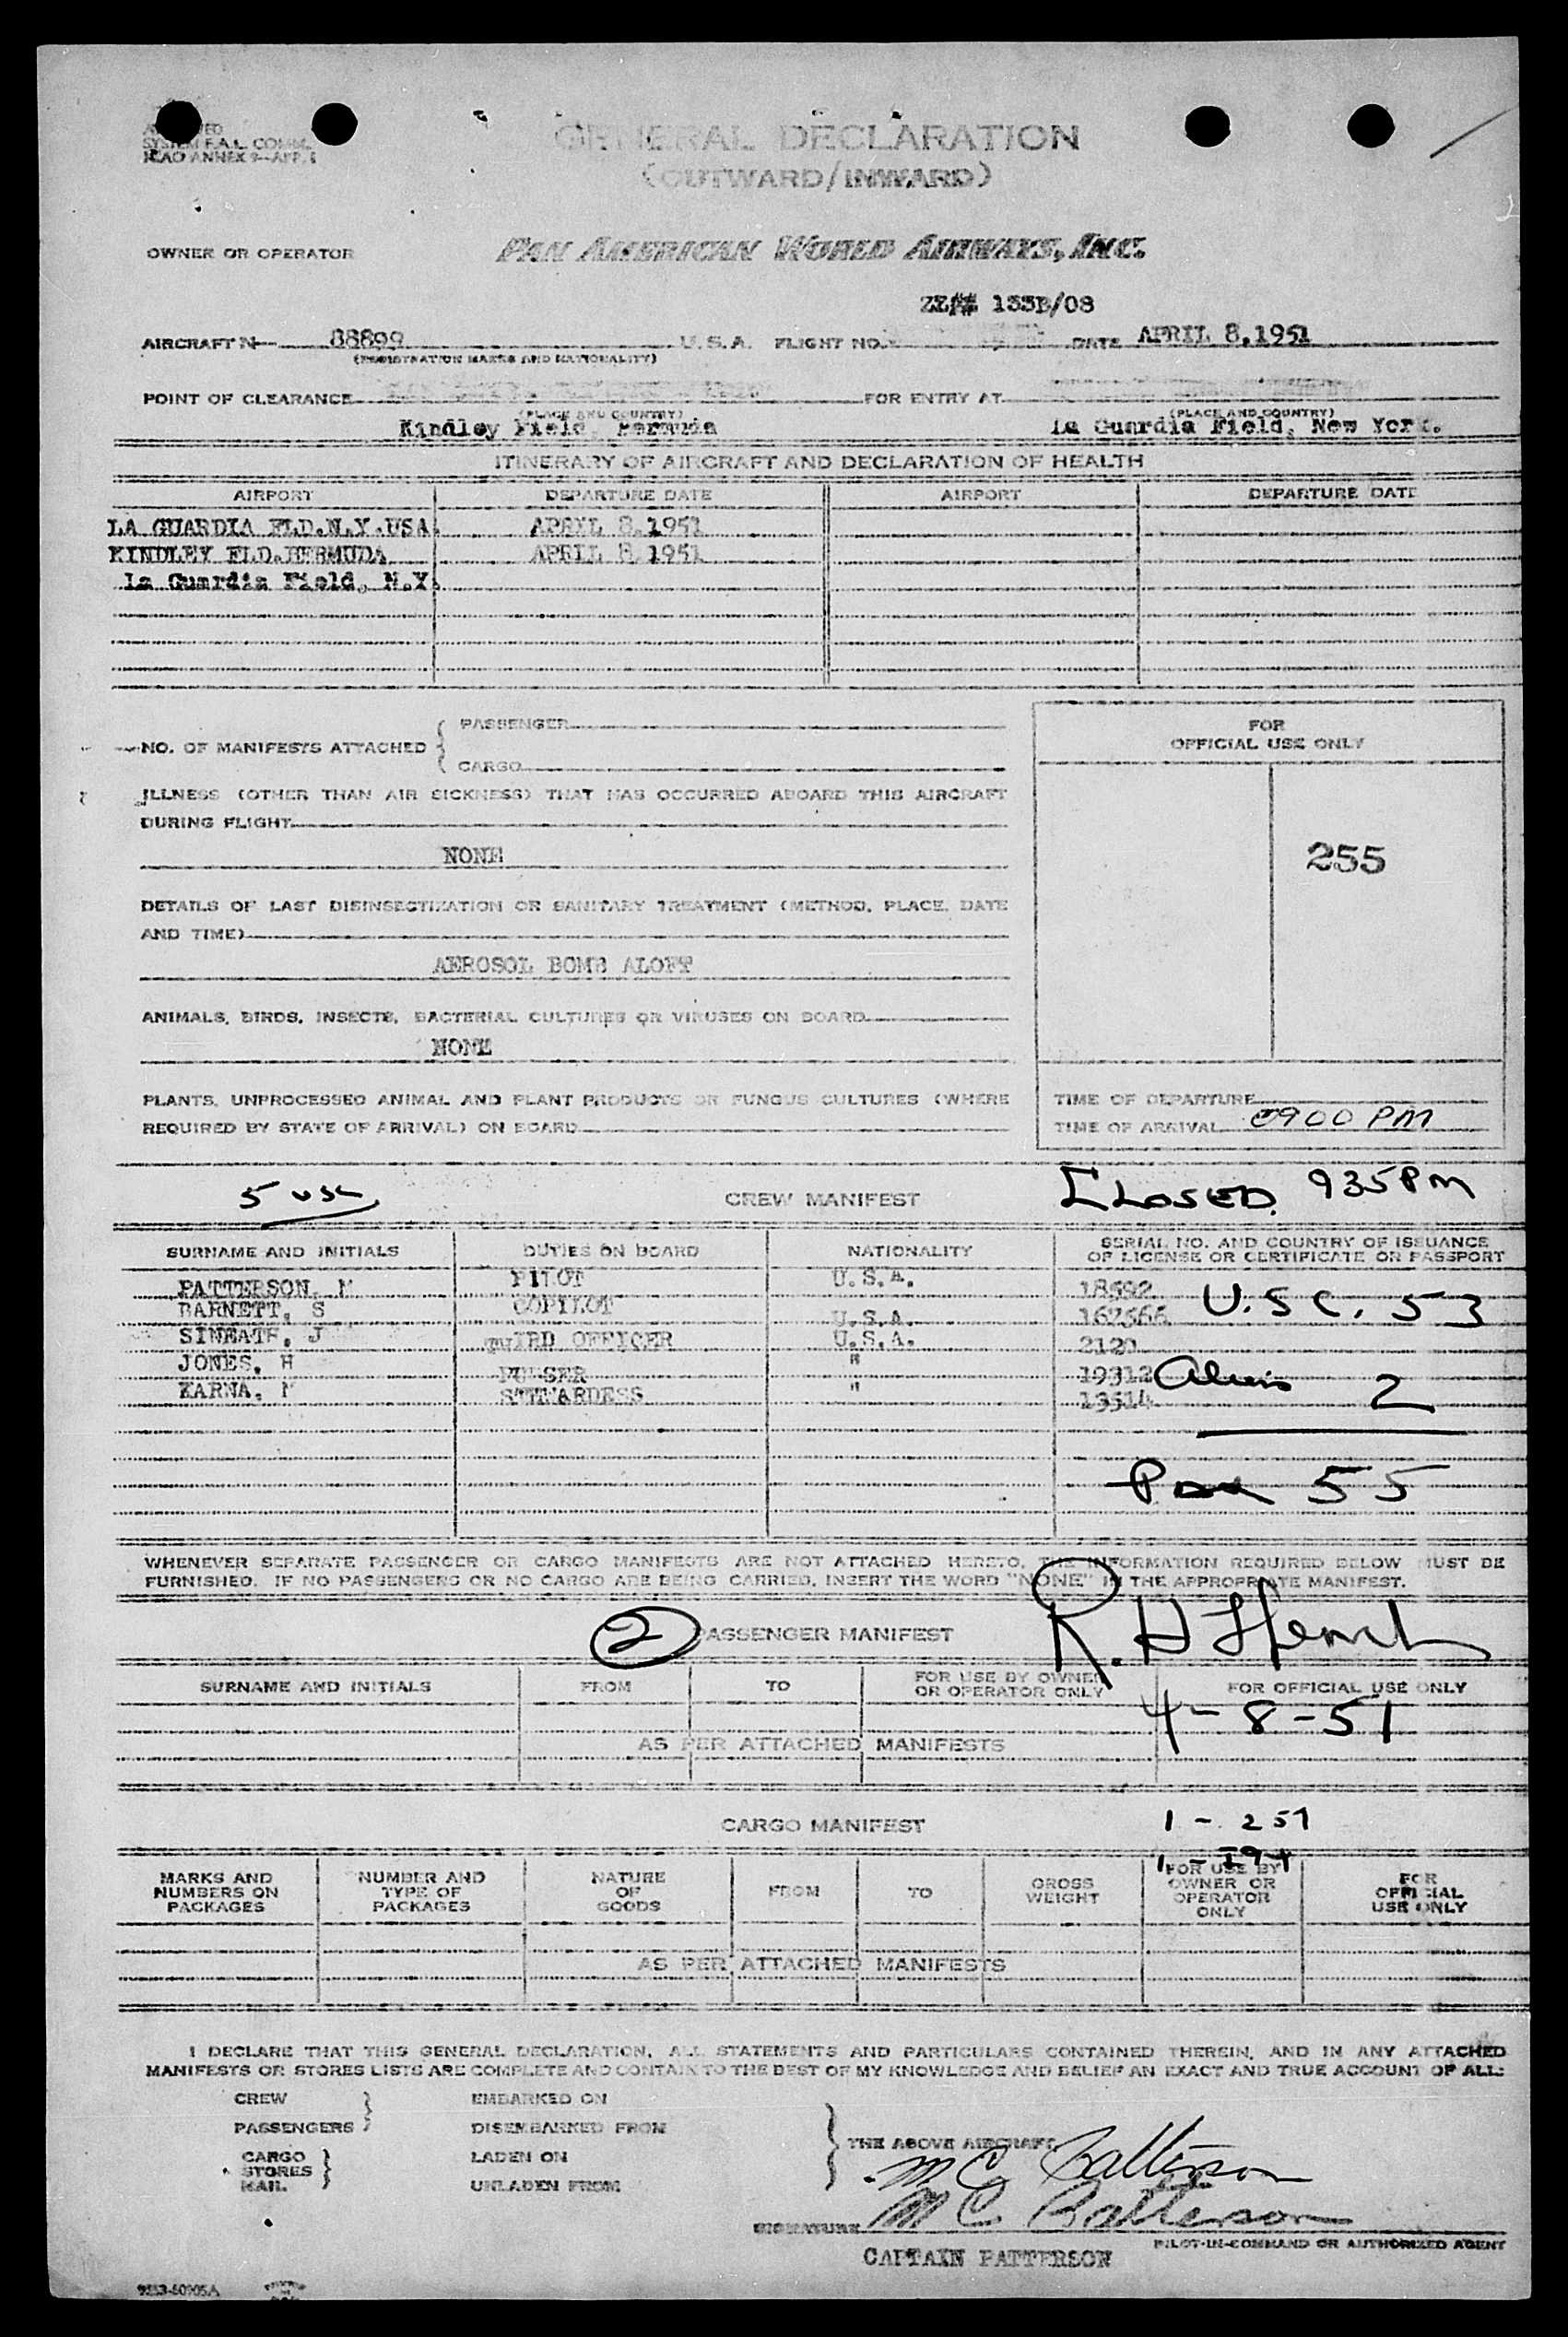 SYSTEM F.A.L. COMM.
ICAO ANNEX 9—APP. 1
GENERAL DECLARATION
(OUTWARD/INWARD)
OWNER OR OPERATOR PAN AMERICAN WORLD AIRWAYS, INC.
133B/08
AIRCRAFT N— 88899 U.S.A. FLIGHT NO. DATE APRIL 8.1951
(REGISTRATION MARKS AND NATIONALITY)
POINT OF CLEARANCE FOR ENTRY AT
(PLACE AND COUNTRY) (PLACE AND COUNTRY)
Kindley Field, Bermuda La Guardia Field, New York.
ITINERARY OF AIRCRAFT AND DECLARATION OF HEALTH
AIRPORT DEPARTURE DATE AIRPORT DEPARTURE DATE
LA GUARDIA FLD.N.Y.USA. APRIL 8.1951
KINDLEY FLD.BERMUDA APRIL 8.1951
La Guardia Field, N.Y.
NO. OF MANIFESTS ATTACHED { PASSENGER
CARGO
FOR
OFFICIAL USE ONLY
ILLNESS (OTHER THAN AIR SICKNESS) THAT HAS OCCURRED ABOARD THIS AIRCRAFT
DURING FLIGHT
NONE
255
DETAILS OF LAST DISINSECTIZATION OR SANITARY TREATMENT (METHOD, PLACE, DATE
AND TIME)
AEROSOL BOMB ALOFT
ANIMALS, BIRDS, INSECTS, BACTERIAL CULTURES OR VIRUSES ON BOARD
NONE
PLANTS, UNPROCESSED ANIMAL AND PLANT PRODUCTS OR FUNGUS CULTURES (WHERE
REQUIRED BY STATE OF ARRIVAL) ON BOARD
TIME OF DEPARTURE
TIME OF ARRIVAL 0900 PM
5 USC CREW MANIFEST CLOSED. 935 PM
SURNAME AND INITIALS DUTIES ON BOARD NATIONALITY SERIAL NO. AND COUNTRY OF ISSUANCE
OF LICENSE OR CERTIFICATE OR PASSPORT
PATTERSON, M PILOT U.S.A. 18592
BARNETT, S COPILOT U.S.A. 167566 U.S.C. 53
SINEATH, J THIRD OFFICER U.S.A. 2120
JONES, H PURSER " 19312 Aliens 2
KARNA, M STEWARDESS " 13514
Pax 55
WHENEVER SEPARATE PASSENGER OR CARGO MANIFESTS ARE NOT ATTACHED HERETO, THE INFORMATION REQUIRED BELOW MUST BE
FURNISHED. IF NO PASSENGERS OR NO CARGO ARE BEING CARRIED, INSERT THE WORD "NONE" IN THE APPROPRIATE MANIFEST.
2 PASSENGER MANIFEST
SURNAME AND INITIALS FROM TO FOR USE BY OWNER
OR OPERATOR ONLY FOR OFFICIAL USE ONLY
4-8-51
AS PER ATTACHED MANIFESTS
CARGO MANIFEST 1 - 257
MARKS AND
NUMBERS ON
PACKAGES NUMBER AND
TYPE OF
PACKAGES NATURE
OF
GOODS FROM TO GROSS
WEIGHT FOR USE BY
OWNER OR
OPERATOR
ONLY FOR
OFFICIAL
USE ONLY
AS PER ATTACHED MANIFESTS
I DECLARE THAT THIS GENERAL DECLARATION, ALL STATEMENTS AND PARTICULARS CONTAINED THEREIN, AND IN ANY ATTACHED
MANIFESTS OR STORES LISTS ARE COMPLETE AND CONTAIN TO THE BEST OF MY KNOWLEDGE AND BELIEF AN EXACT AND TRUE ACCOUNT OF ALL:
CREW EMBARKED ON
PASSENGERS DISEMBARKED FROM
CARGO LADEN ON
STORES
MAIL UNLADEN FROM
THE ABOVE AIRCRAFT.
M C Patterson
SIGNATURE M C Patterson
PILOT-IN-COMMAND OR AUTHORIZED AGENT
CAPTAIN PATTERSON